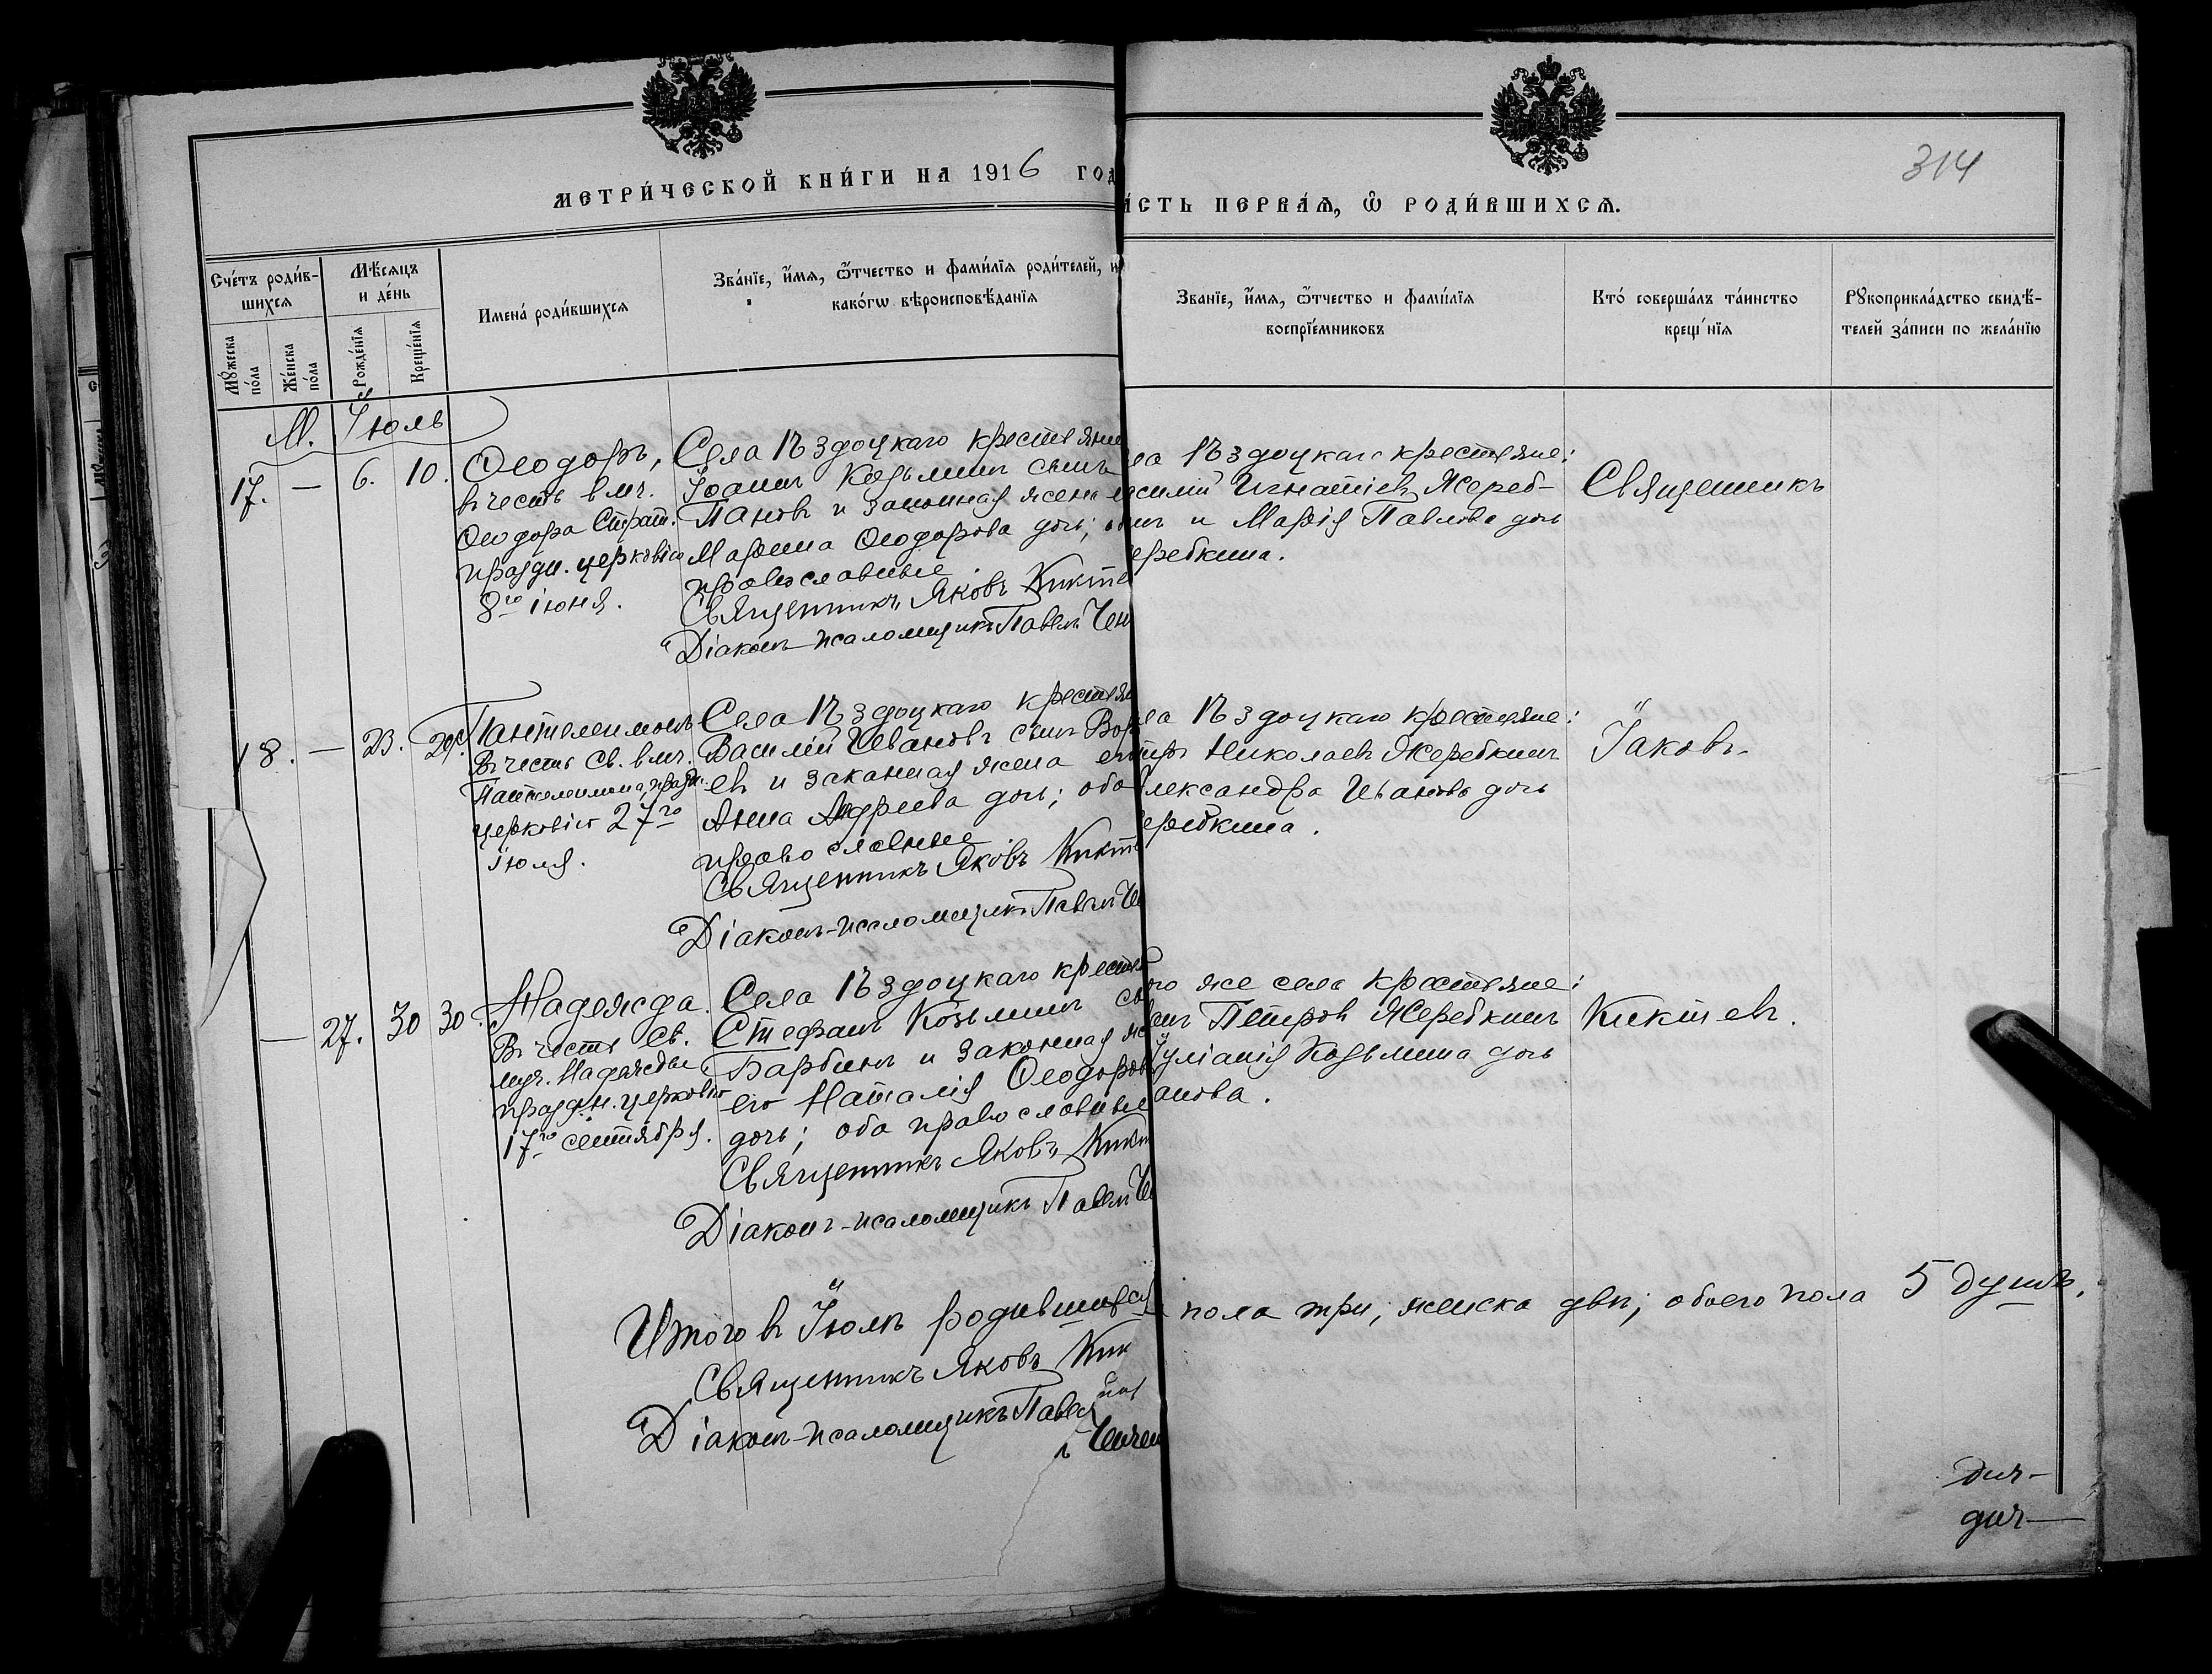 МЕТРИ́ЧЕСКОЙ КНИ́ГИ НА 1916 ГОД
А́СТЬ ПЕРВА́Ѧ, Ѽ РОДИ́ВШИХСѦ.
314
Сче́тъ роди́в-
шихсѧ
Мѣ́сѧцъ
и де́нь
Имена́ роди́вшихсѧ
Зва́нїе, и́мѧ, ѻ́тчество и фами́лїѧ роди́телей, и
како́гѡ вѣроисповѣ́данїѧ
Зва́нїе, и́мѧ, ѻ́тчество и фами́лїѧ
воспрїе́мниковъ
Кто́ соверша́лъ та́инство
креще́нїѧ
Рꙋкоприкла́дство свидѣ́-
телей за́писи по жела́нїю
Мꙋ́жеска
по́ла
Же́нска
по́ла
Рожде́нїѧ
Креще́нїѧ
М. Іюль
17. — 6. 10.
Ѳеодоръ,
въ честь влмч.
Ѳеодора Страт.
праздн. церковію
8го іюня.
Села Ѣздоцкаго крестьяни
Іоаннъ Козьминъ сынъ
Пановъ и законная жена
Марина Ѳеодорова дочь;
православные.
Священникъ Яковъ Никит
Діаконъ-псаломщикъ Павелъ
ла Ѣздоцкаго крестьяне:
асилій Игнатіевъ Жереб-
инъ и Марія Павлова дочь
еребкина.
Священникъ
18. — 23. 24.
Пантелеимонъ
Въ честь св. влмч.
Пантелеимона, праздн.
церковію 27го
Іюля.
Села Ѣздоцкаго крестьян
Василій Ивановъ сынъ Вор
евъ и законная жена его
Анна Андреева дочь; оба
православные
Священникъ Яковъ Никит
Діаконъ-псаломщикъ Павелъ
ла Ѣздоцкаго крестьяне:
Николаевъ Жеребкинъ
лександра Иванова дочь
еребкина.
Іаковъ
— 27. 30 30.
Надежда.
Въ честь св.
муч. Надежды,
праздн. церковію
17го сентября.
Села Ѣздоцкаго крестья
Стефанъ Козьминъ сы
Барбинъ и законная же
его Наталія Ѳеодоров
дочь; оба православные
Священникъ Яковъ Никит
Діаконъ-псаломщикъ Павелъ
го же села крестьяне:
Петровъ Жеребкинъ
Іуліанія Козьмина дочь
анова.
Никитевъ.
Итого въ Іюлѣ родившихся
пола три, женска двѣ; обоего пола 5 душъ.
Священникъ Яковъ Ник
Діаконъ-псаломщикъ Павел